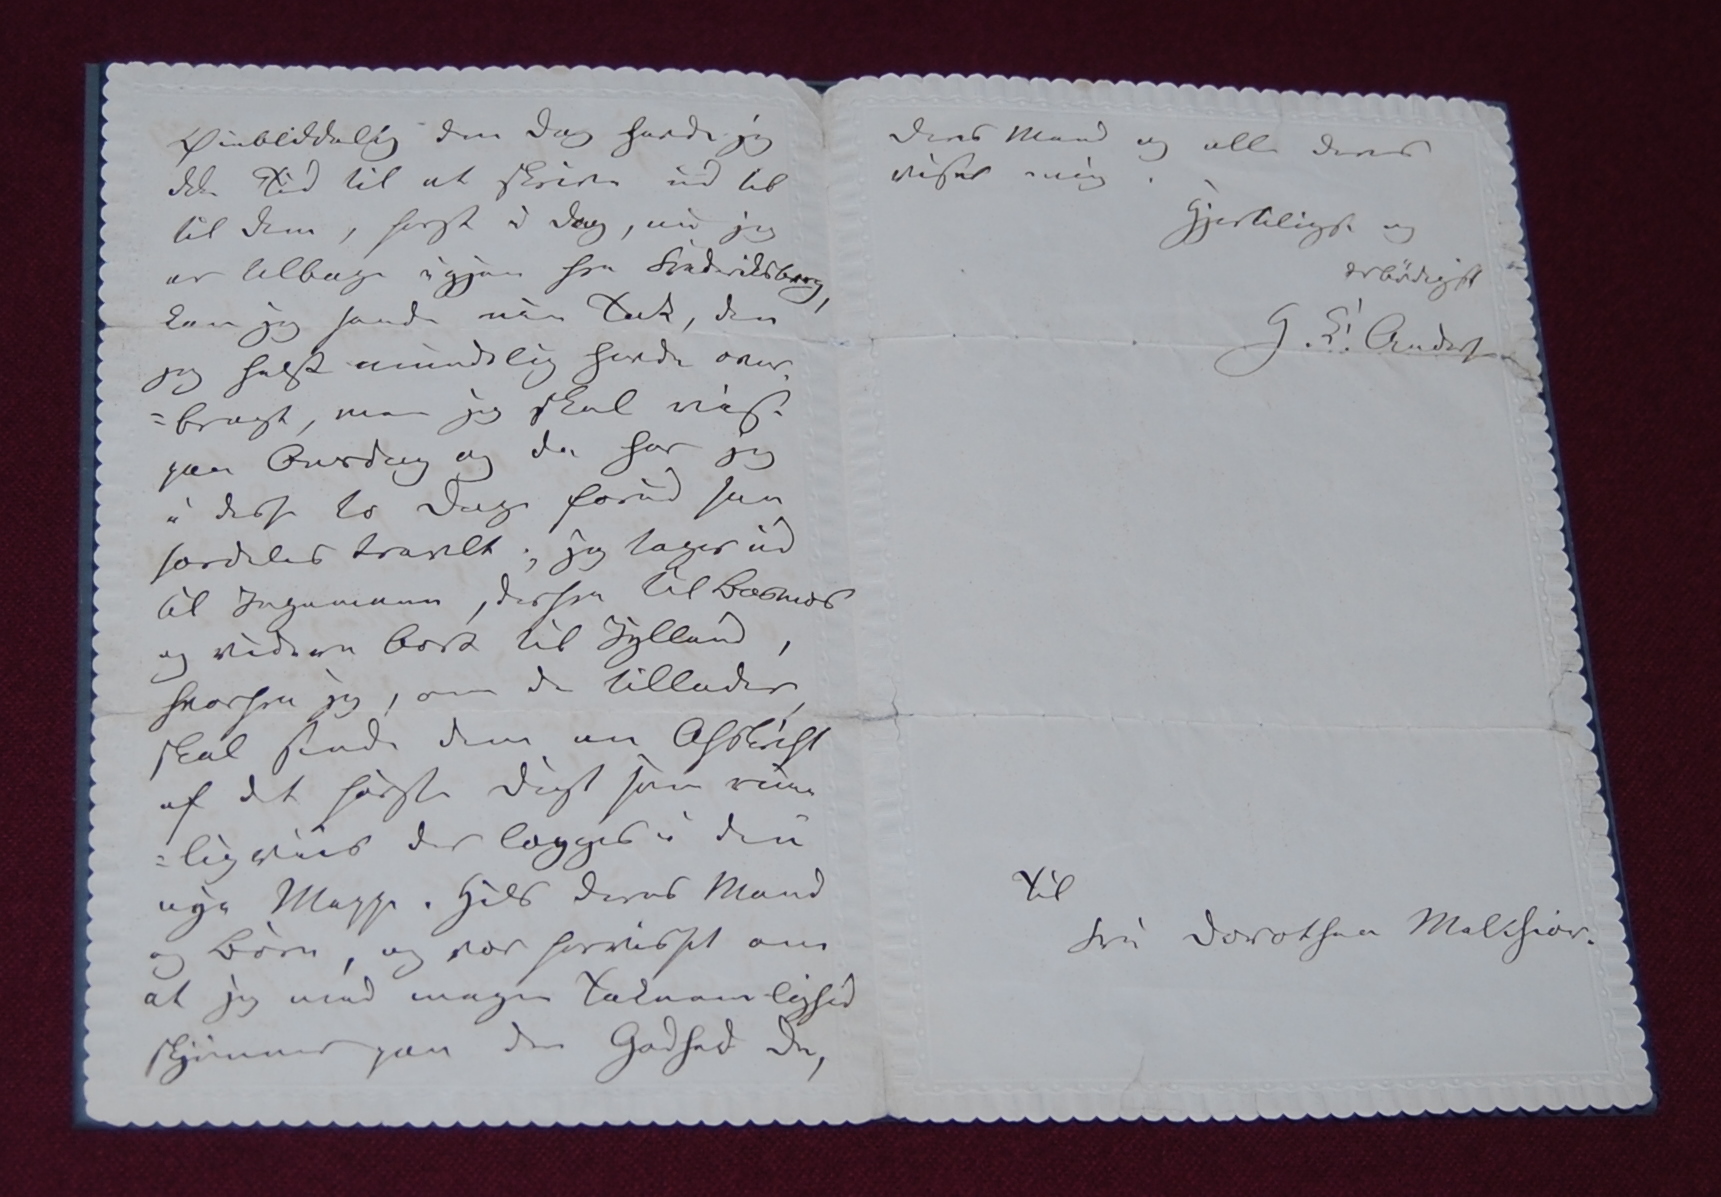 Øieblikkelig den Dag havde jeg
ikke Tid til at skrive ud til
til Dem, først i Dag, nu jeg
er tilbage igjen fra Frederiksborg,
kan jeg sende min Tak, den
jeg helst mundtlig havde over-
=bragt, men jeg skal reise
paa Onsdag og da har jeg
i disse to Dage forud saa
særdeles travlt; jeg tager ud
til Ingemann, derfra til Basnæs
og videre bort til Jylland,
hvorfra jeg, om De tillader,
skal sende Dem en Afskrift
af det første Digt som rime
=ligviis der lægges i den
nye Mappe. Hils Deres Mand
og Børn, og vær forvisset om
at jeg med megen Taknemlighed
skjønner paa den Godhed De,
Deres Mand og alle Deres
viser mig.
Hjerteligst og
ærbødigst
H. C. Andersen
Til
Fru Dorothea Melchior.